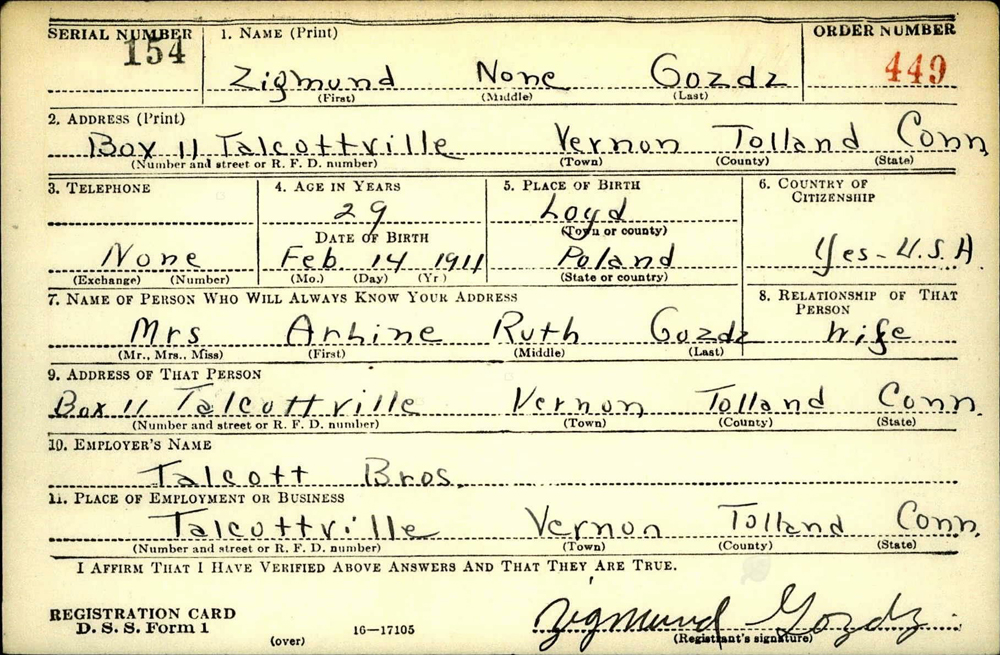 SERIAL NUMBER 1. NAME (Print) ORDER NUMBER
154 Zigmund None Gozdz 449
(First) (Middle) (Last)
2. ADDRESS (Print)
Box 11 Talcottville Vernon Tolland Conn.
(Number and street or R. F. D. number) (Town) (County) (State)
3. TELEPHONE 4. AGE IN YEARS 5. PLACE OF BIRTH 6. COUNTRY OF CITIZENSHIP
29 Loyd
DATE OF BIRTH (Town or county)
None Feb. 14 1911 Poland Yes - U.S.A.
(Exchange) (Number) (Mo.) (Day) (Yr) (State or country)
7. NAME OF PERSON WHO WILL ALWAYS KNOW YOUR ADDRESS 8. RELATIONSHIP OF THAT PERSON
Mrs Arhine Ruth Gozdz Wife
(Mr., Mrs., Miss) (First) (Middle) (Last)
9. ADDRESS OF THAT PERSON
Box 11 Talcottville Vernon Tolland Conn.
(Number and street or R. F. D. number) (Town) (County) (State)
10. EMPLOYER'S NAME
Talcott Bros.
11. PLACE OF EMPLOYMENT OR BUSINESS
Talcottville Vernon Tolland Conn.
(Number and street or R. F. D. number) (Town) (County) (State)
I AFFIRM THAT I HAVE VERIFIED ABOVE ANSWERS AND THAT THEY ARE TRUE.
REGISTRATION CARD
D. S. S. Form 1 Zigmund Gozdz
(over) 16-17105 (Registrant's signature)